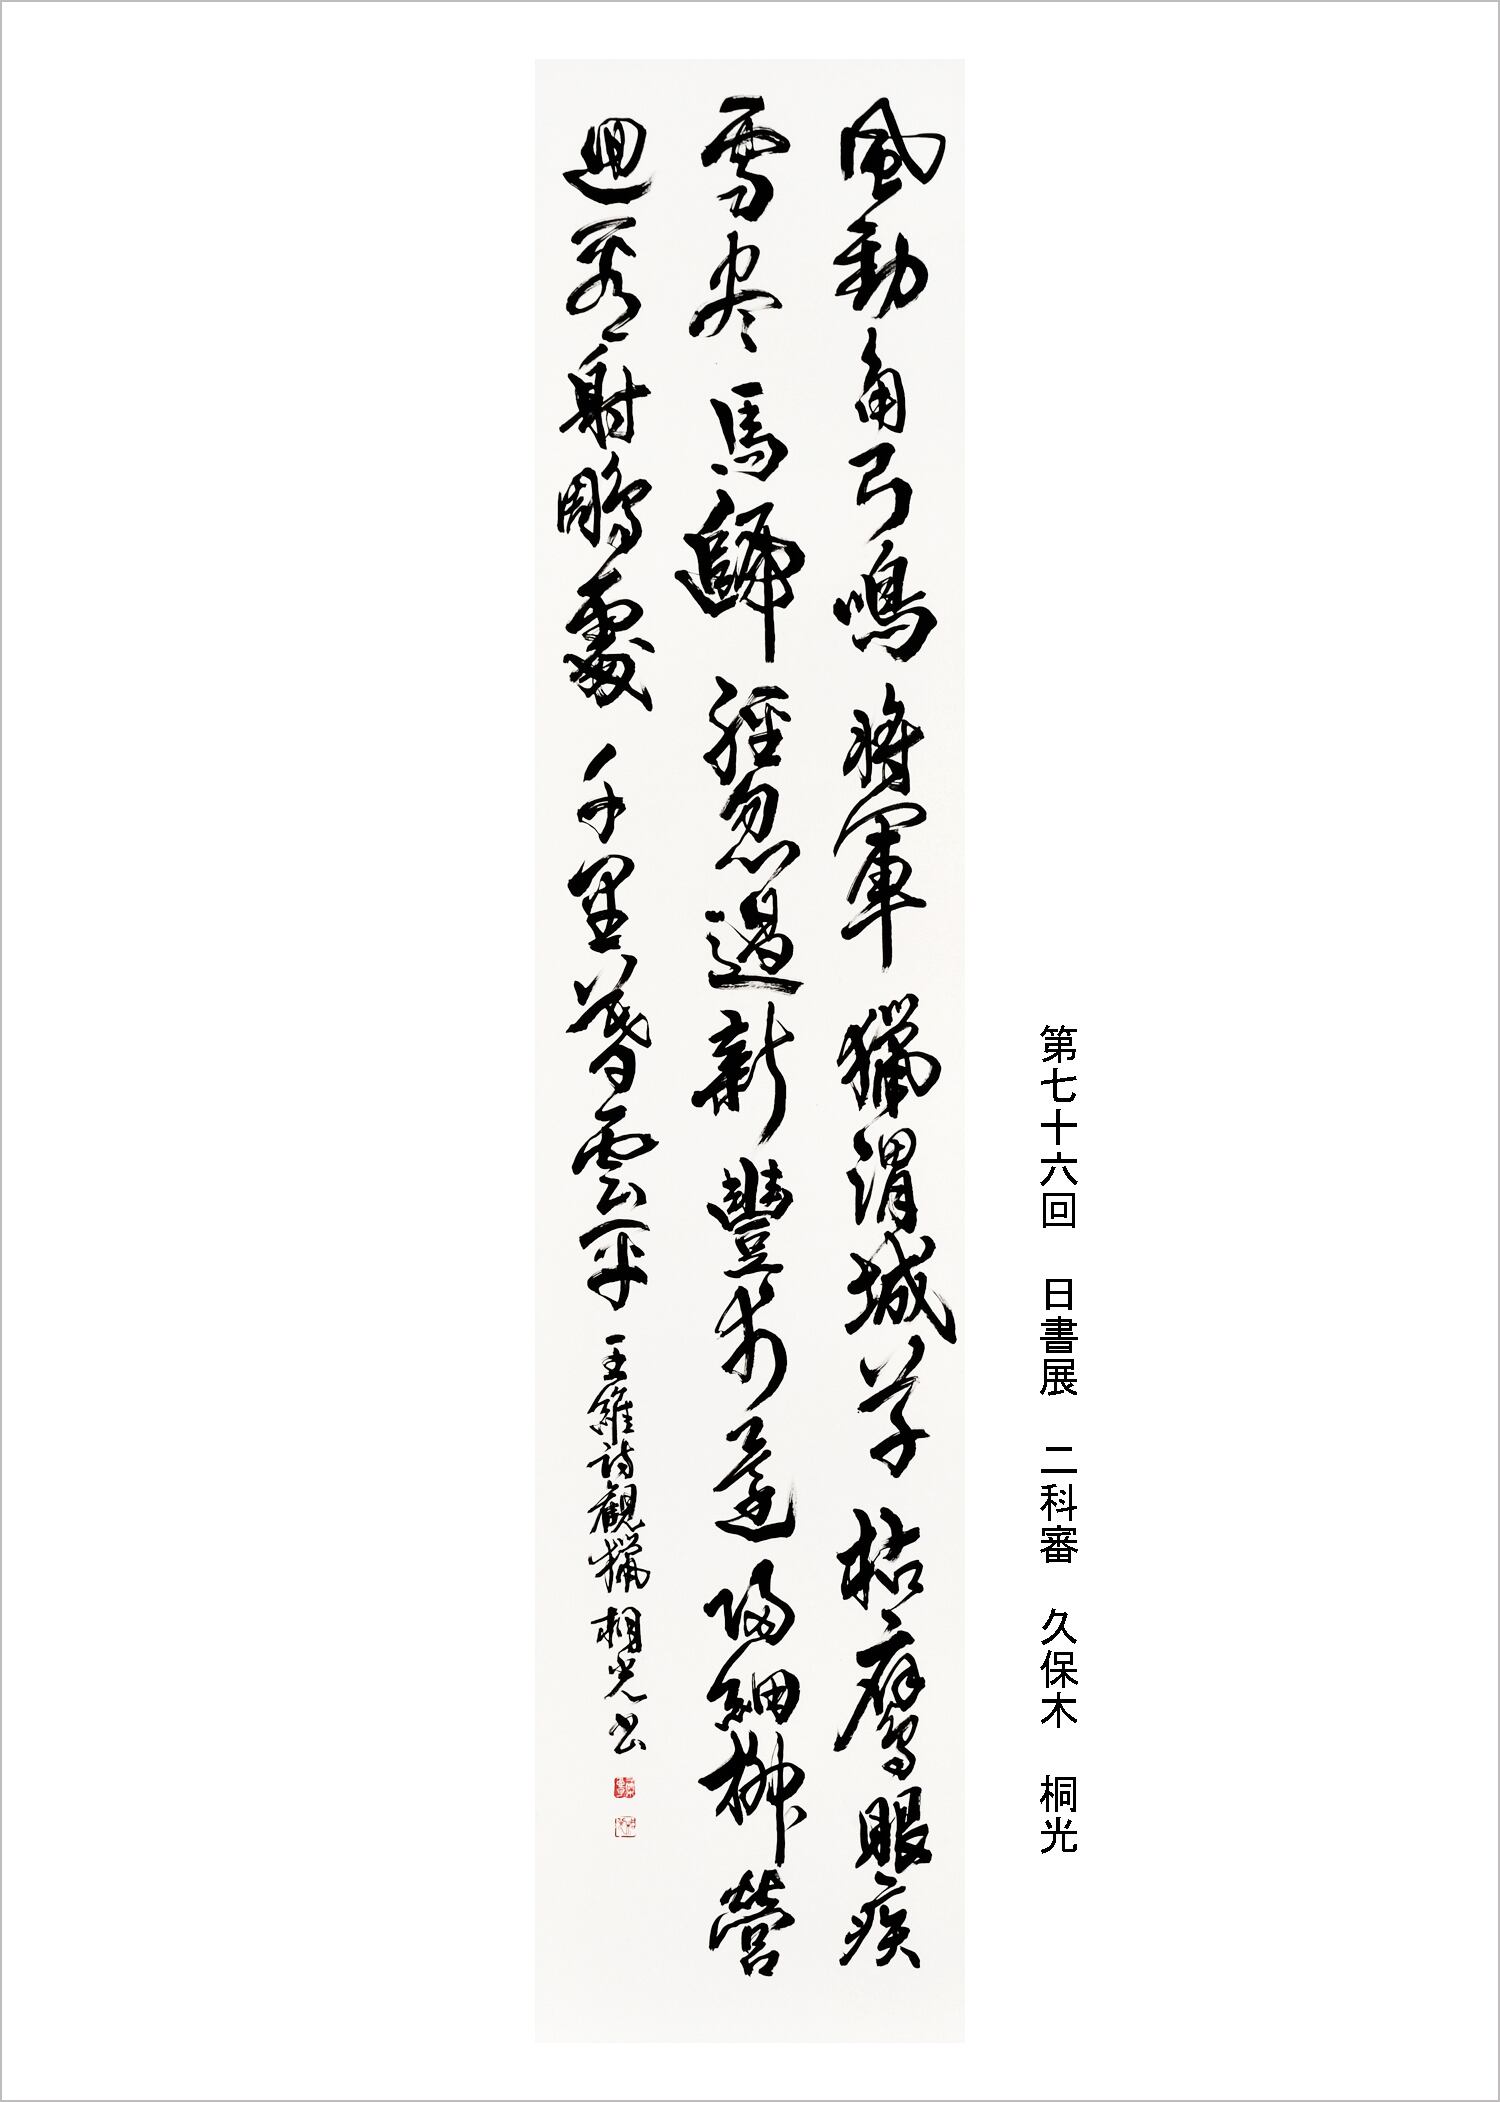 第七十六回　日書展　二科審　久保木　桐光
風勁角弓鳴將軍猟渭城草枯鷹眼疾
雪尽馬蹄軽忽過新豐市還歸細柳營
迴看射鵰處千里暮雲平 王維詩観猟 桐光書